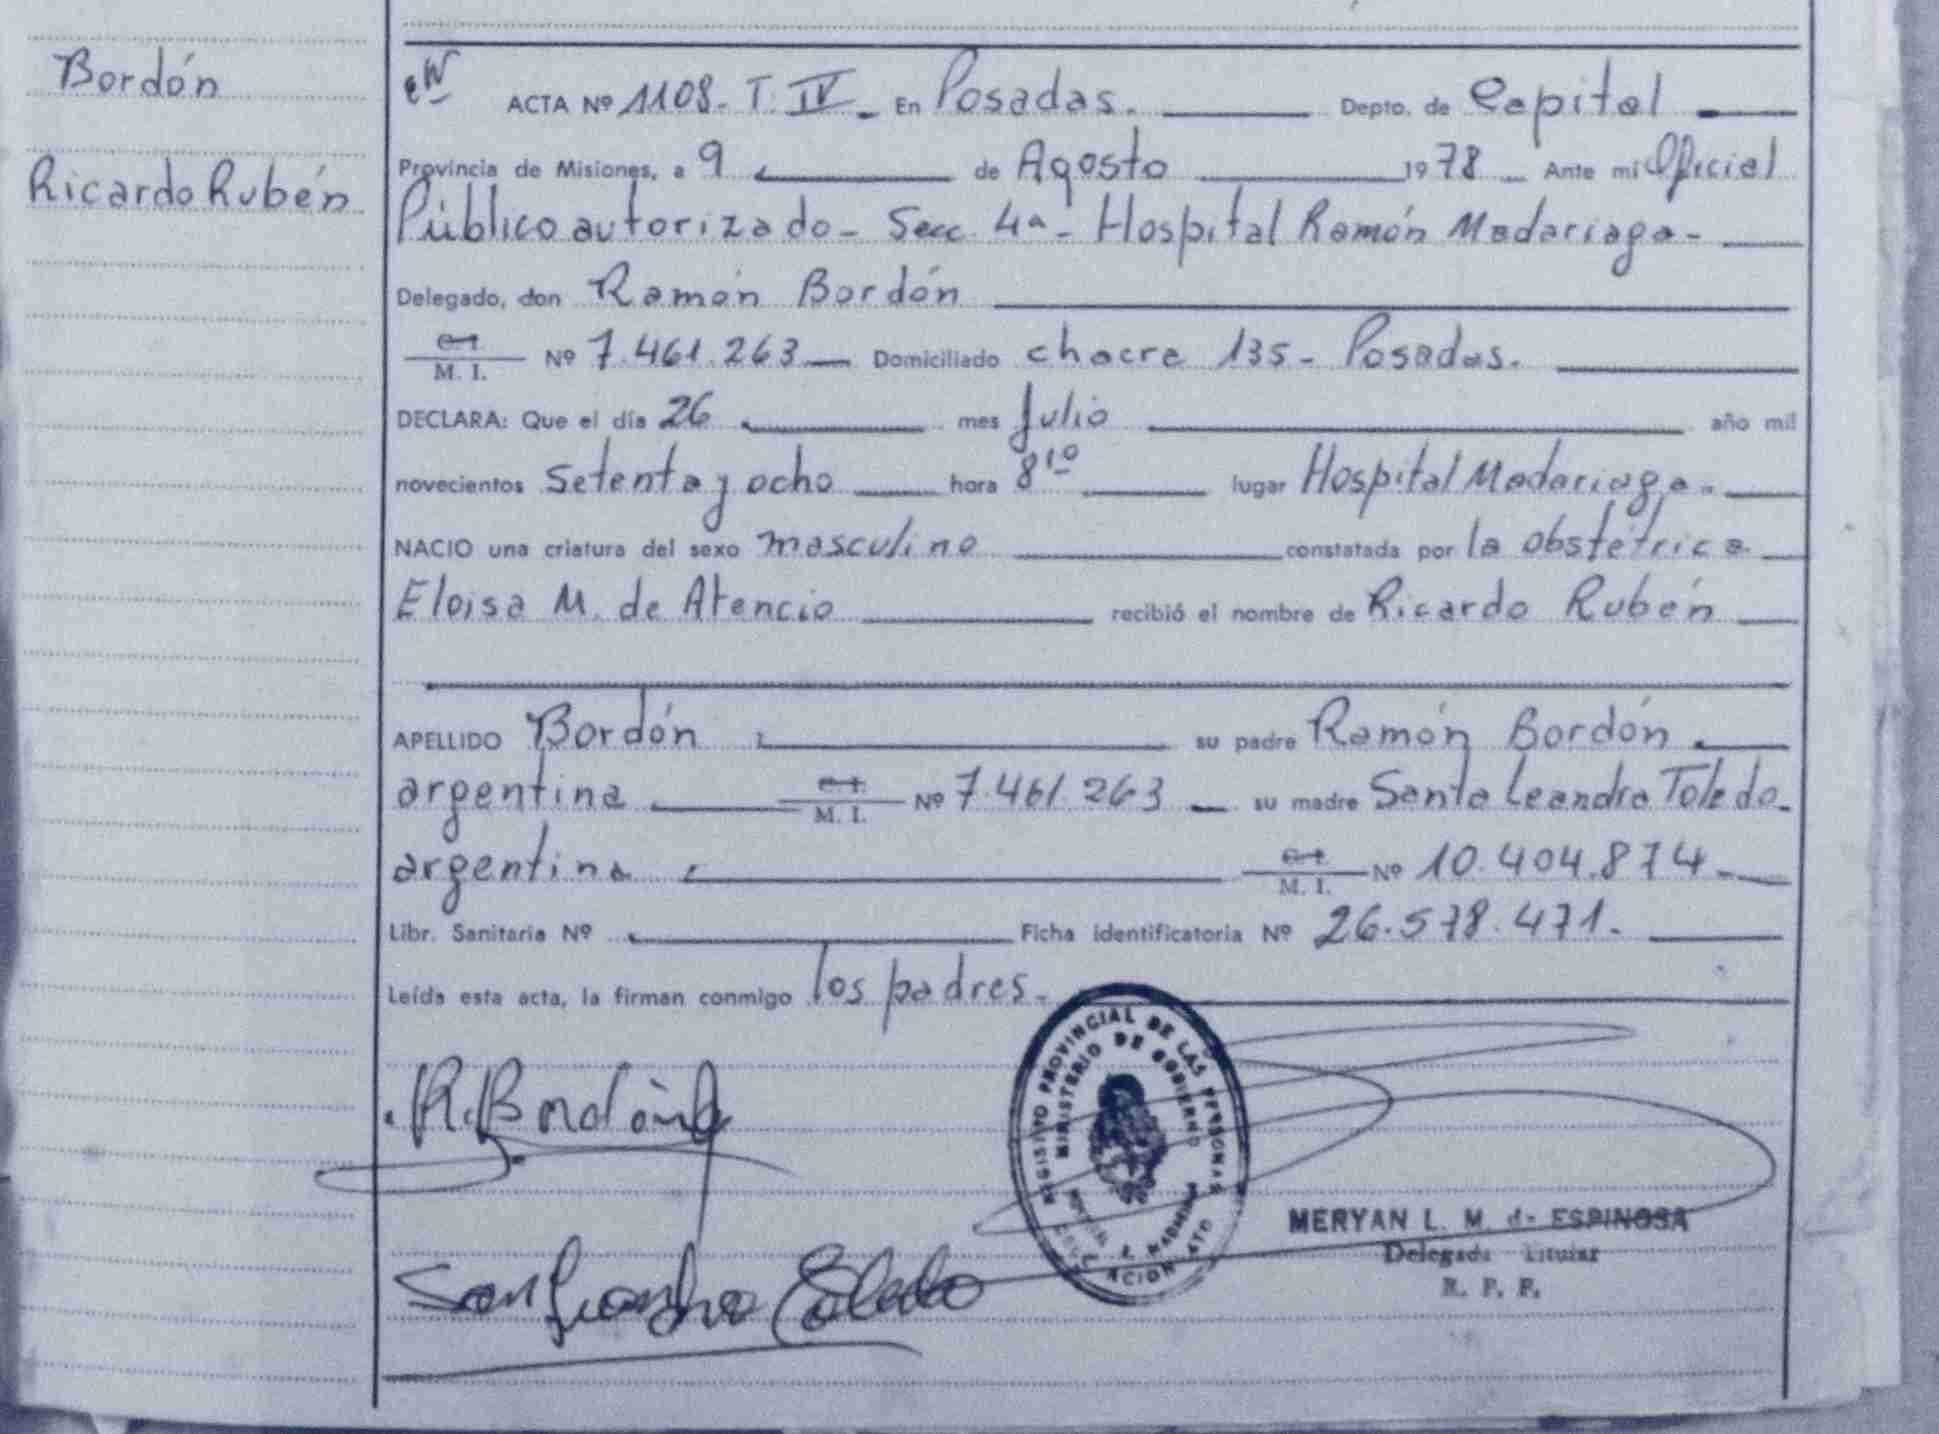 Bordón
Ricardo Rubén
ACTA Nº 1108. T. IV - En Posadas. Depto. de Capital
Provincia de Misiones, a 9 de Agosto 1978 Ante mí Oficial
Público autorizado - Secc. 4ª - Hospital Ramón Madariaga -
Delegado, don Ramón Bordón
C.I. M. I. Nº 7.461.263 Domiciliado chacra 135 - Posadas.
DECLARA: Que el día 26 mes Julio año mil
novecientos setenta y ocho hora 8¹⁰ lugar Hospital Madariaga.
NACIO una criatura del sexo masculino constatada por la obstétrica
Eloisa M. de Atencio recibió el nombre de Ricardo Rubén
APELLIDO Bordón su padre Ramón Bordón
argentina C.I. M. I. Nº 7.461.263 su madre Santa Leandra Toledo
argentina C.I. M. I. Nº 10.404.874
Libr. Sanitaria Nº Ficha identificatoria Nº 26.578.471.
Leída esta acta, la firman conmigo los padres.
REGISTRO PROVINCIAL DE LAS PERSONAS
MINISTERIO DE GOBIERNO
R. Bordón
MERYAN L. M. de ESPINOSA
Delegada Titular
R. P. P.